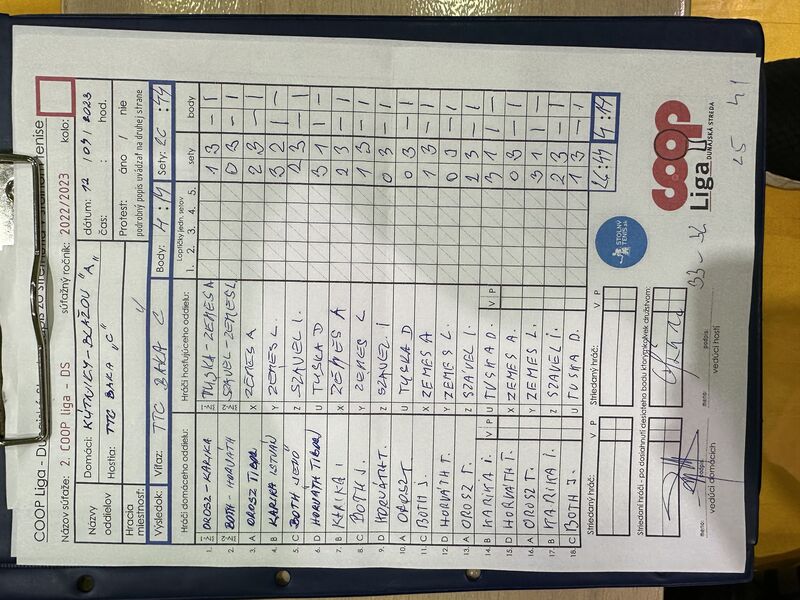 COOP Liga - D
Názov súťaže: 2. COOP liga - DS súťažný ročník: 2022/2023 kolo:
Názvy oddielov
Domáci: KÚTNIKY-BLAŽOV "A"
Hostia: TTC BAKA "C"
dátum: 12 / 09 / 2023
čas: : hod.
Hracia miestnosť:
Protest: áno / nie
podrobný popis uvádzať na druhej strane
Výsledok: Víťaz: TTC BAKA C Body: 4:14 Sety: 26:44
Hráči domáceho oddielu: Hráči hosťujúceho oddielu: Loptičky jedn. setov sety body
1. 2. 3. 4. 5.
1. OROSZ - KARIKA TUSKA - ZEMES A 1 3 - 1
2. BOTH - HORVÁTH SZÁVEL - ZEMES L 0 3 - 1
3. A OROSZ TIBOR X ZEMES A 2 3 - 1
4. B KARIKA ISTVÁN Y ZEMES L. 3 2 1 -
5. C BOTH JENŐ Z SZÁVEL I. 2 3 - 1
6. D HORVÁTH TIBOR U TUSKA D 3 1 1 -
7. B KARIKA I X ZEMES A 2 3 - 1
8. C BOTH J. Y ZEMES L 1 3 - 1
9. D HORVÁTH T. Z SZAVEL I 0 3 - 1
10. A OROSZ T U TUSKA D 0 3 - 1
11. C BOTH J. X ZEMES A 1 3 - 1
12. D HORVÁTH T. Y ZEMES L. 0 3 - 1
13. A OROSZ T. Z SZAVEL I. 2 3 - 1
14. B KARIKA I. V P U TUSKA D. V P 3 1 1 -
15. D HORVÁTH T. X ZEMES A 0 3 - 1
16. A OROSZ T. Y ZEMES L. 3 1 1 -
17. B KARIKA I. Z SZAVEL I 2 3 - 1
18. C BOTH J. U TUSKA D. 1 3 - 1
26:44 4:14
Striedaný hráč: V P Striedaný hráč: V P
Striedaní hráči - po dosiahnutí desiateho bodu ktorýmkoľvek družstvom:
STOLNÝ
TENIS.sk
coop
Liga DUNAJSKÁ STREDA
meno: podpis: meno: podpis:
vedúci domácich vedúci hostí
33 - 32
25 41